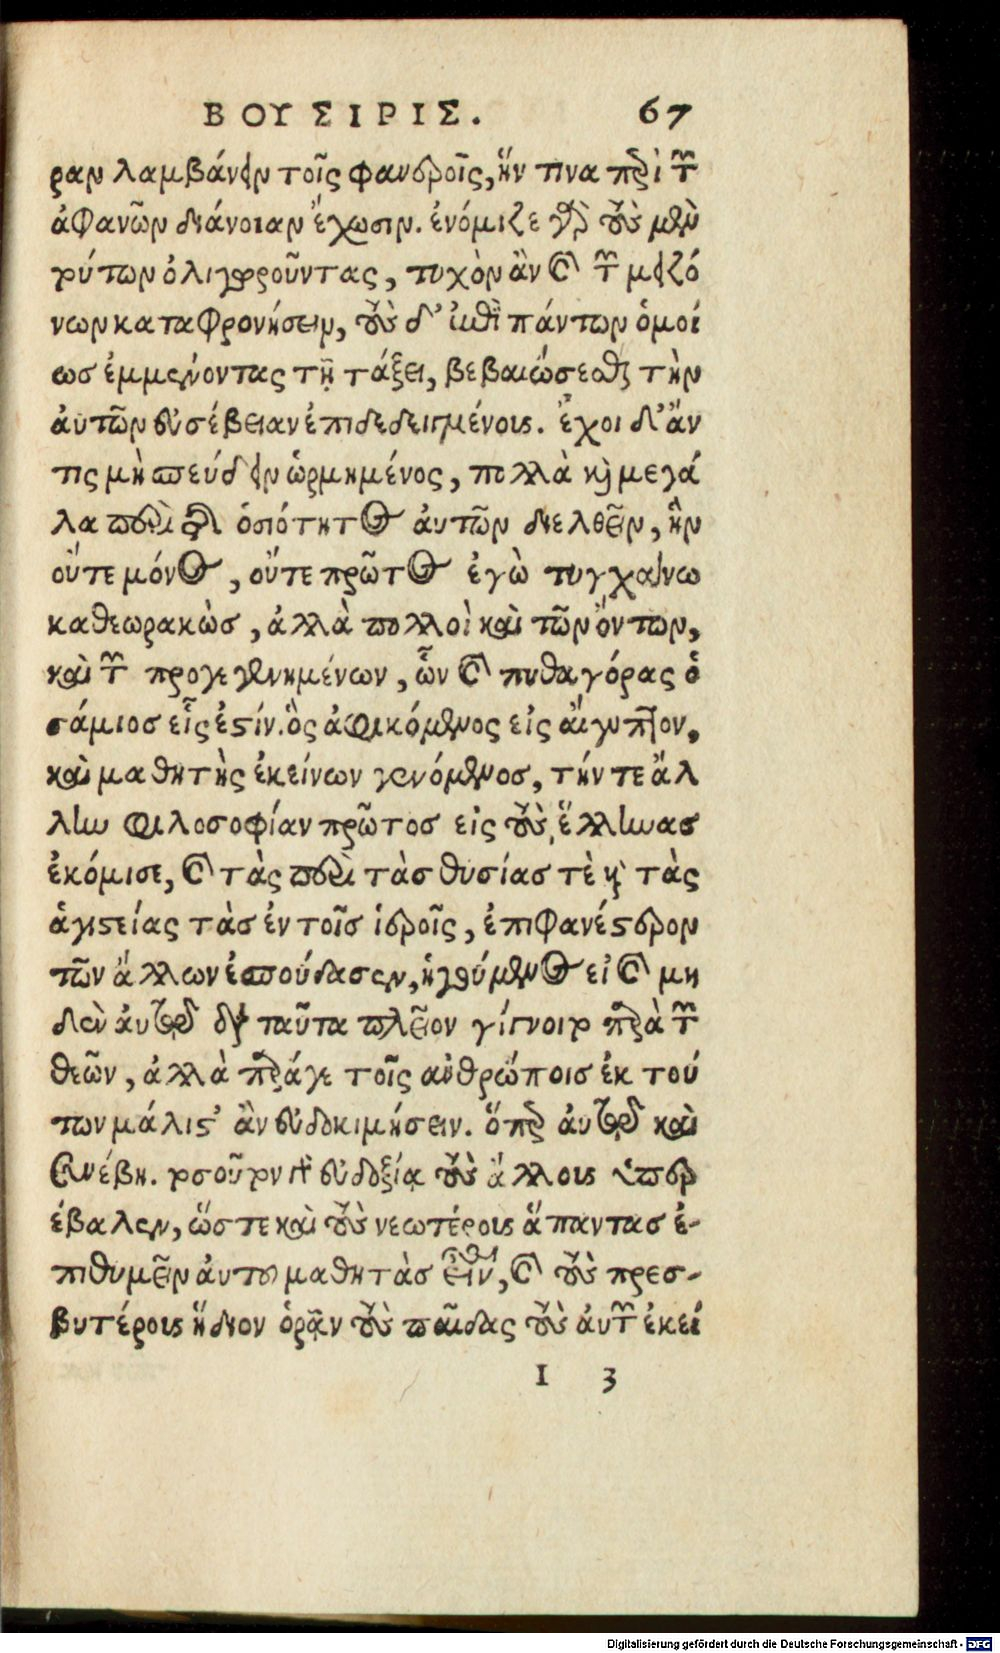 ΒΟΥΣΙΡΙΣ. 67
ραν λαμβάνειν τοῖς φανεροῖς, ἥν τινα περὶ τῶν
ἀφανῶν διάνοιαν ἔχωσιν. ἐνόμιζε γὰρ τοὺς μὲν
τούτων ὀλιγωροῦντας, τυχὸν ἂν καὶ τῶν μειζό
νων καταφρονήσειν, τοὺς δ' ἐπὶ πάντων ὁμοί
ως ἐμμένοντας τῇ τάξει, βεβαιώσεσθαι τὴν
αὐτῶν εὐσέβειαν ἐπιδεδειγμένους. ἔχοι δ' ἄν
τις μὴ σπεύδειν ὡρμημένος, πολλὰ καὶ μεγά
λα περὶ τῆς ὁσιότητος αὐτῶν διελθεῖν, ἣν
οὔτε μόνος, οὔτε πρῶτος ἐγὼ τυγχάνω
καθεωρακὼς, ἀλλὰ πολλοὶ καὶ τῶν ὄντων,
καὶ τῶν προγεγενημένων, ὧν καὶ πυθαγόρας ὁ
σάμιος εἷς ἐστίν. ὃς ἀφικόμενος εἰς αἴγυπτον,
καὶ μαθητὴς ἐκείνων γενόμενος, τήν τε ἄλ
λην φιλοσοφίαν πρῶτος εἰς τοὺς ἕλληνας
ἐκόμισε, καὶ τὰς περὶ τὰς θυσίας τὲ καὶ τὰς
ἁγιστείας τὰς ἐν τοῖς ἱεροῖς, ἐπιφανέστερον
τῶν ἄλλων ἐσπούδασεν, ἡγούμενος εἰ καὶ μη
δὲν αὐτῷ διὰ ταῦτα πλεῖον γίγνοιτο παρὰ τῶν
θεῶν, ἀλλὰ παράγε τοῖς ἀνθρώποις ἐκ τού
των μάλιστ' ἂν εὐδοκιμήσειν. ὅπερ αὐτῷ καὶ
συνέβη. τοσοῦτον τῇ εὐδοξίᾳ τοὺς ἄλλους ὑπερ
έβαλεν, ὥστε καὶ τοὺς νεωτέρους ἅπαντας ἐ-
πιθυμεῖν αὐτοῦ μαθητὰς εἶναι, καὶ τοὺς πρεσ-
βυτέρους ἥδιον ὁρᾷν τοὺς παῖδας τοὺς αὐτῶν ἐκεί
I 3
Digitalisierung gefördert durch die Deutsche Forschungsgemeinschaft - DFG